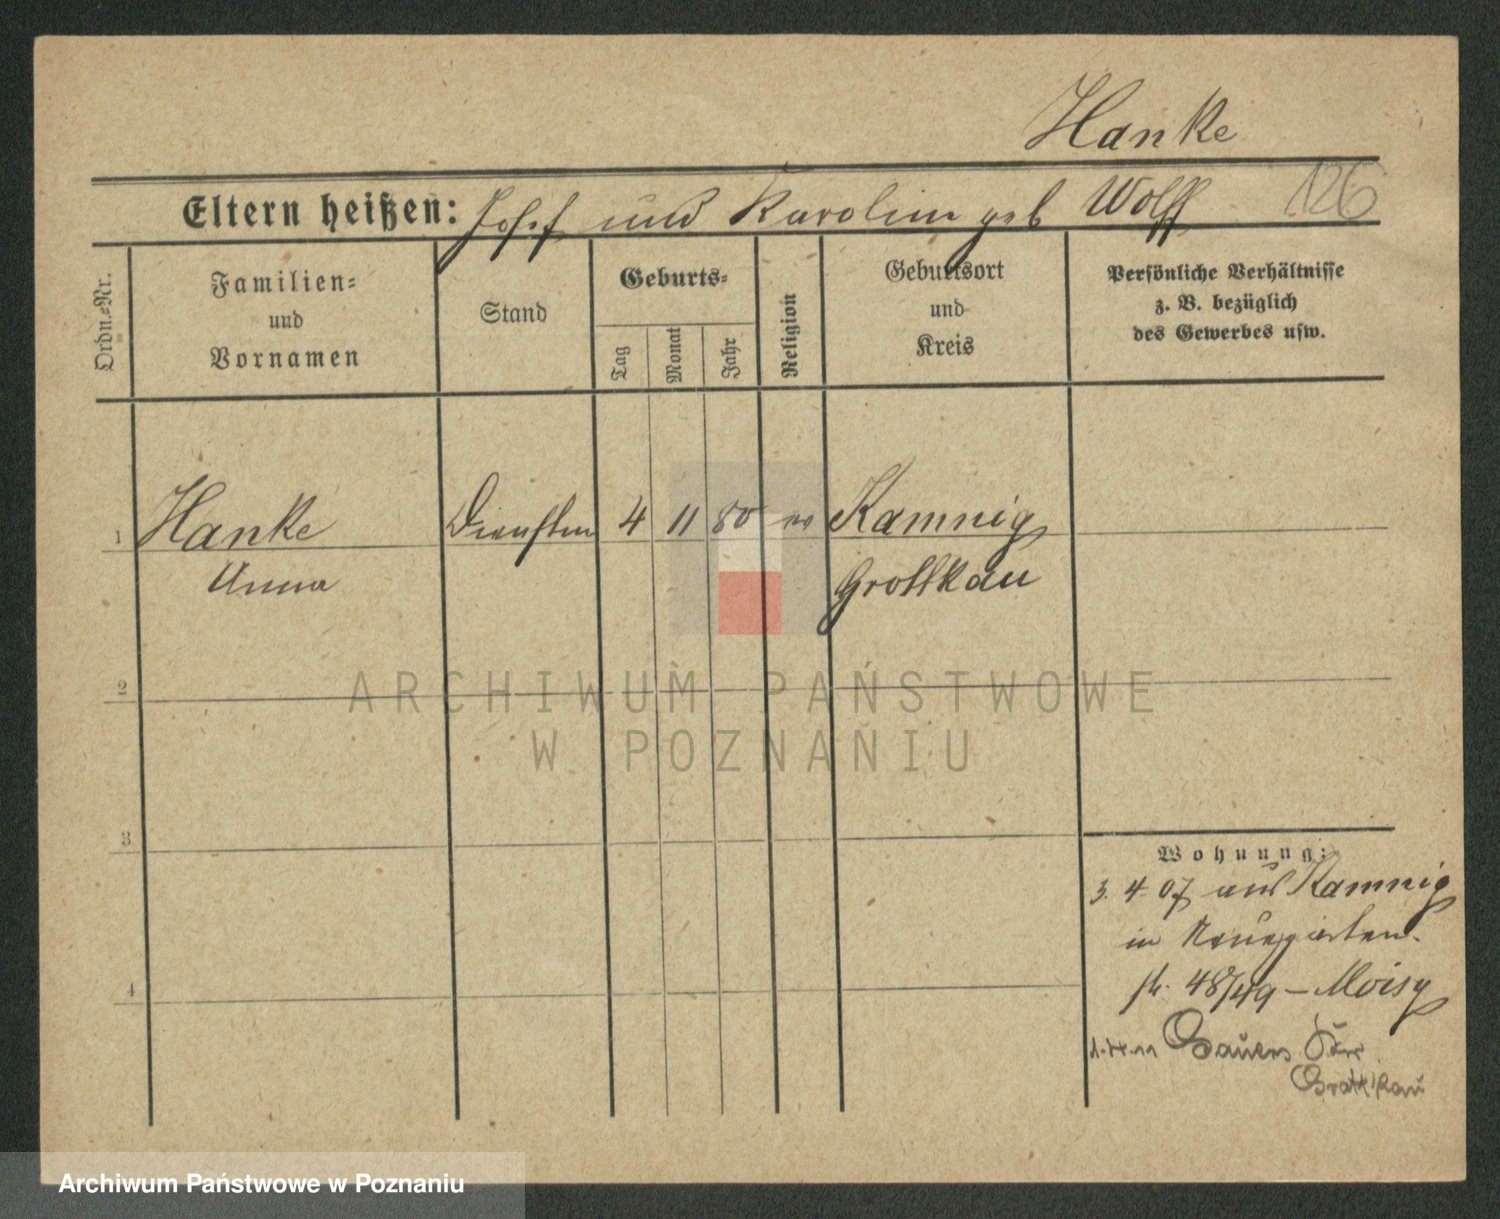 Hanke
Eltern heißen: Josef und Karoline geb Wolff 126
Ordn.=Nr.
Familien=
und
Vornamen
Stand
Geburts=
Tag
Monat
Jahr
Religion
Geburtsort
und
Kreis
Persönliche Verhältnisse
z. B. bezüglich
des Gewerbes usw.
1 Hanke 4 11 80 Kamnig
Anna Grottkau
2
ARCHIWUM PAŃSTWOWE
W POZNANIU
3
Wohnung:
3. 4. 07 aus Kamnig
in
48/49 – Moisy
4
Grottkau
Archiwum Państwowe w Poznaniu